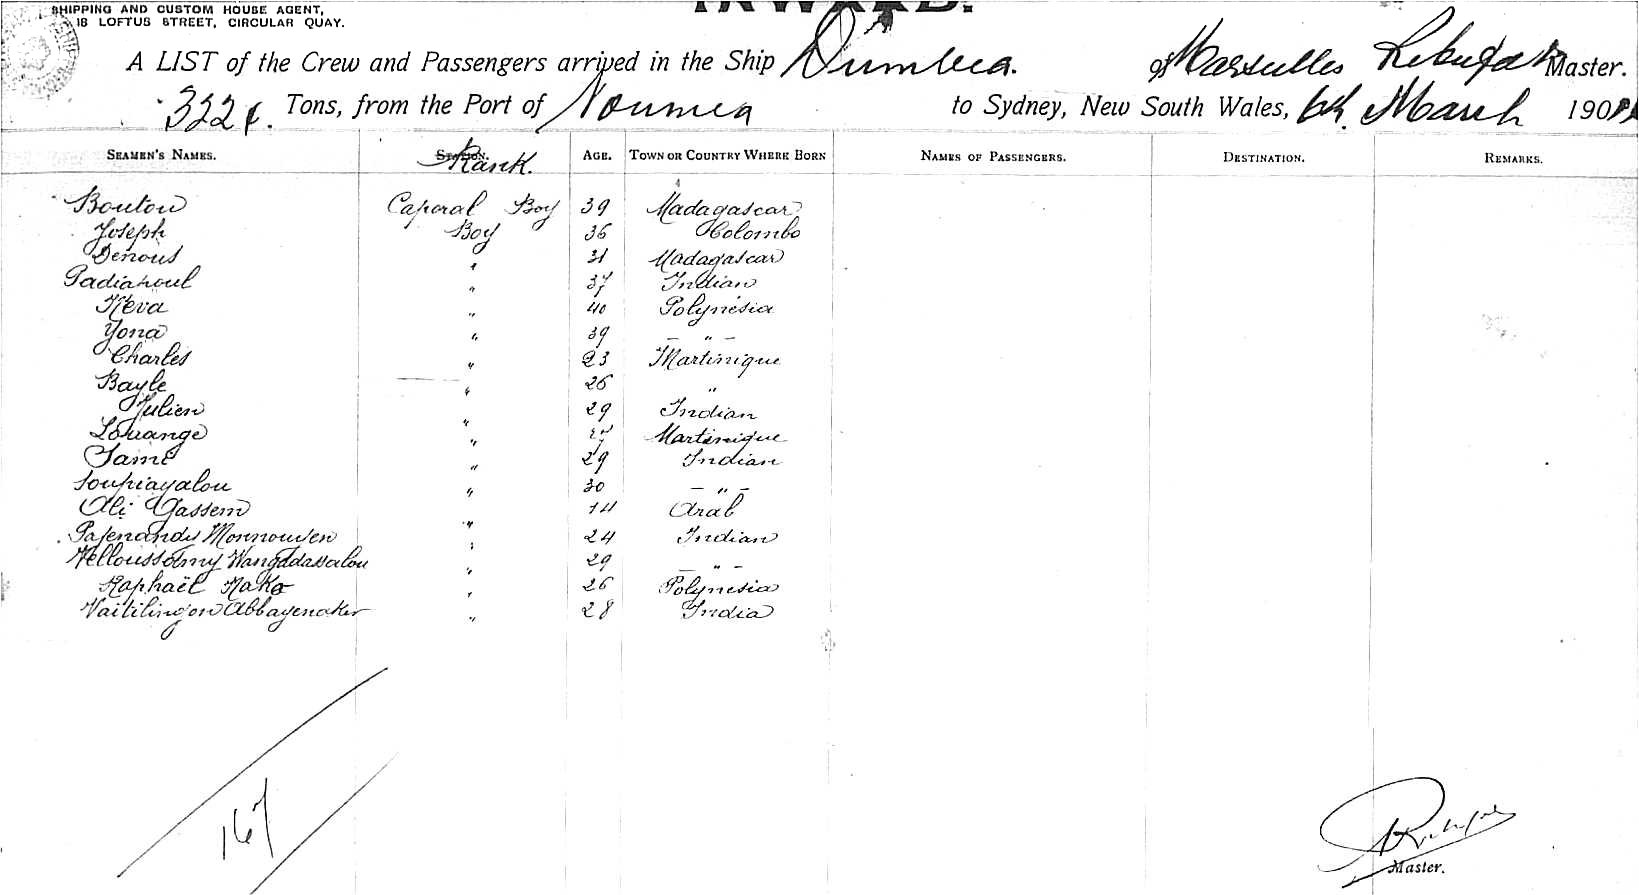 SHIPPING AND CUSTOM HOUSE AGENT,
16 LOFTUS STREET, CIRCULAR QUAY.
INWARD.
A LIST of the Crew and Passengers arrived in the Ship Dumbea. of Marseilles Master.
Tons, from the Port of Noumea to Sydney, New South Wales, 6th March 190
SEAMEN'S NAMES. STATION. Rank. AGE. TOWN OR COUNTRY WHERE BORN NAMES OF PASSENGERS. DESTINATION. REMARKS.
Bouton Caporal Boy 39 Madagascar
Joseph Boy 36 Colombo
Denous " 31 Madagascar
" 37 Indian
Keva " 40 Polynésia
Yona " 39 — " —
Charles " 23 Martinique
Bayle " 26 "
Julien " 29 Indian
Louange " Martinique
Same " 29 Indian
Soupiayalou " 30 — " —
Ali Gassem " 14 Arab
Monnousen " 24 Indian
" 29 — " —
Raphaël Nako " 26 Polynesia
Vaitilingon Abbayenaker " 28 India
167
Master.